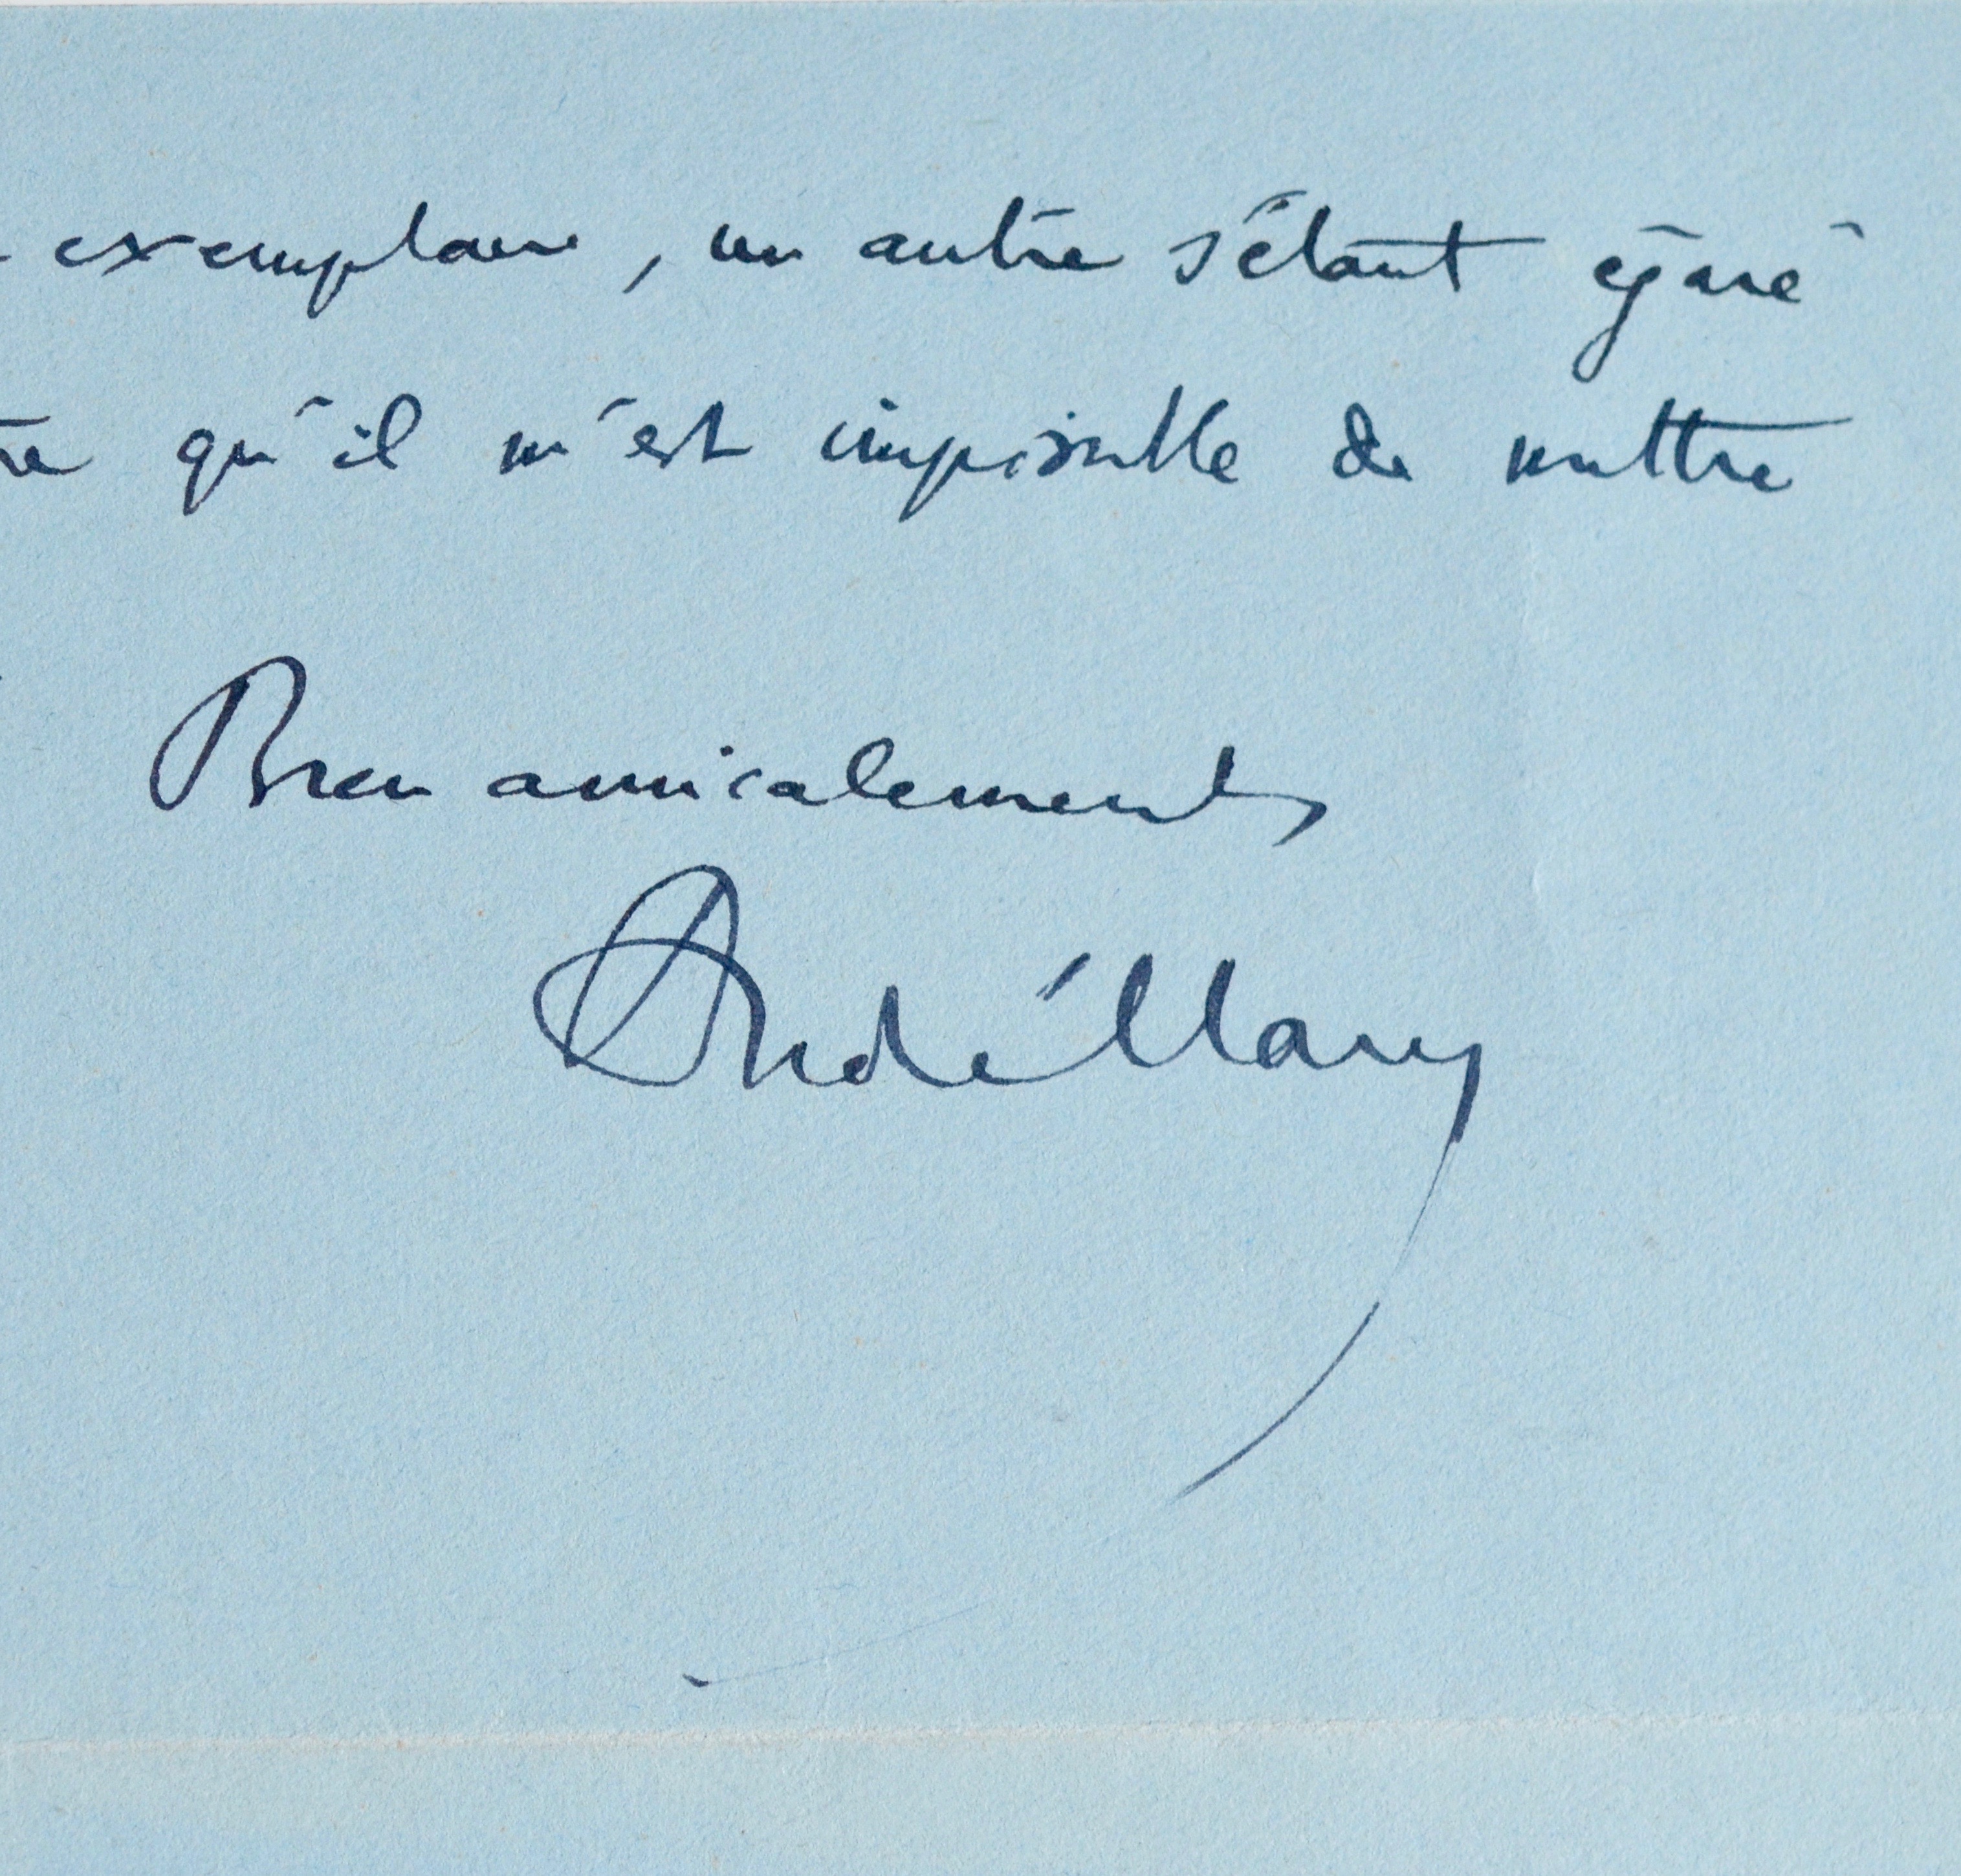 exemplaire, un autre s'étant égaré
qu'il m'est impossible de mettre
Bien amicalement,
André Mary